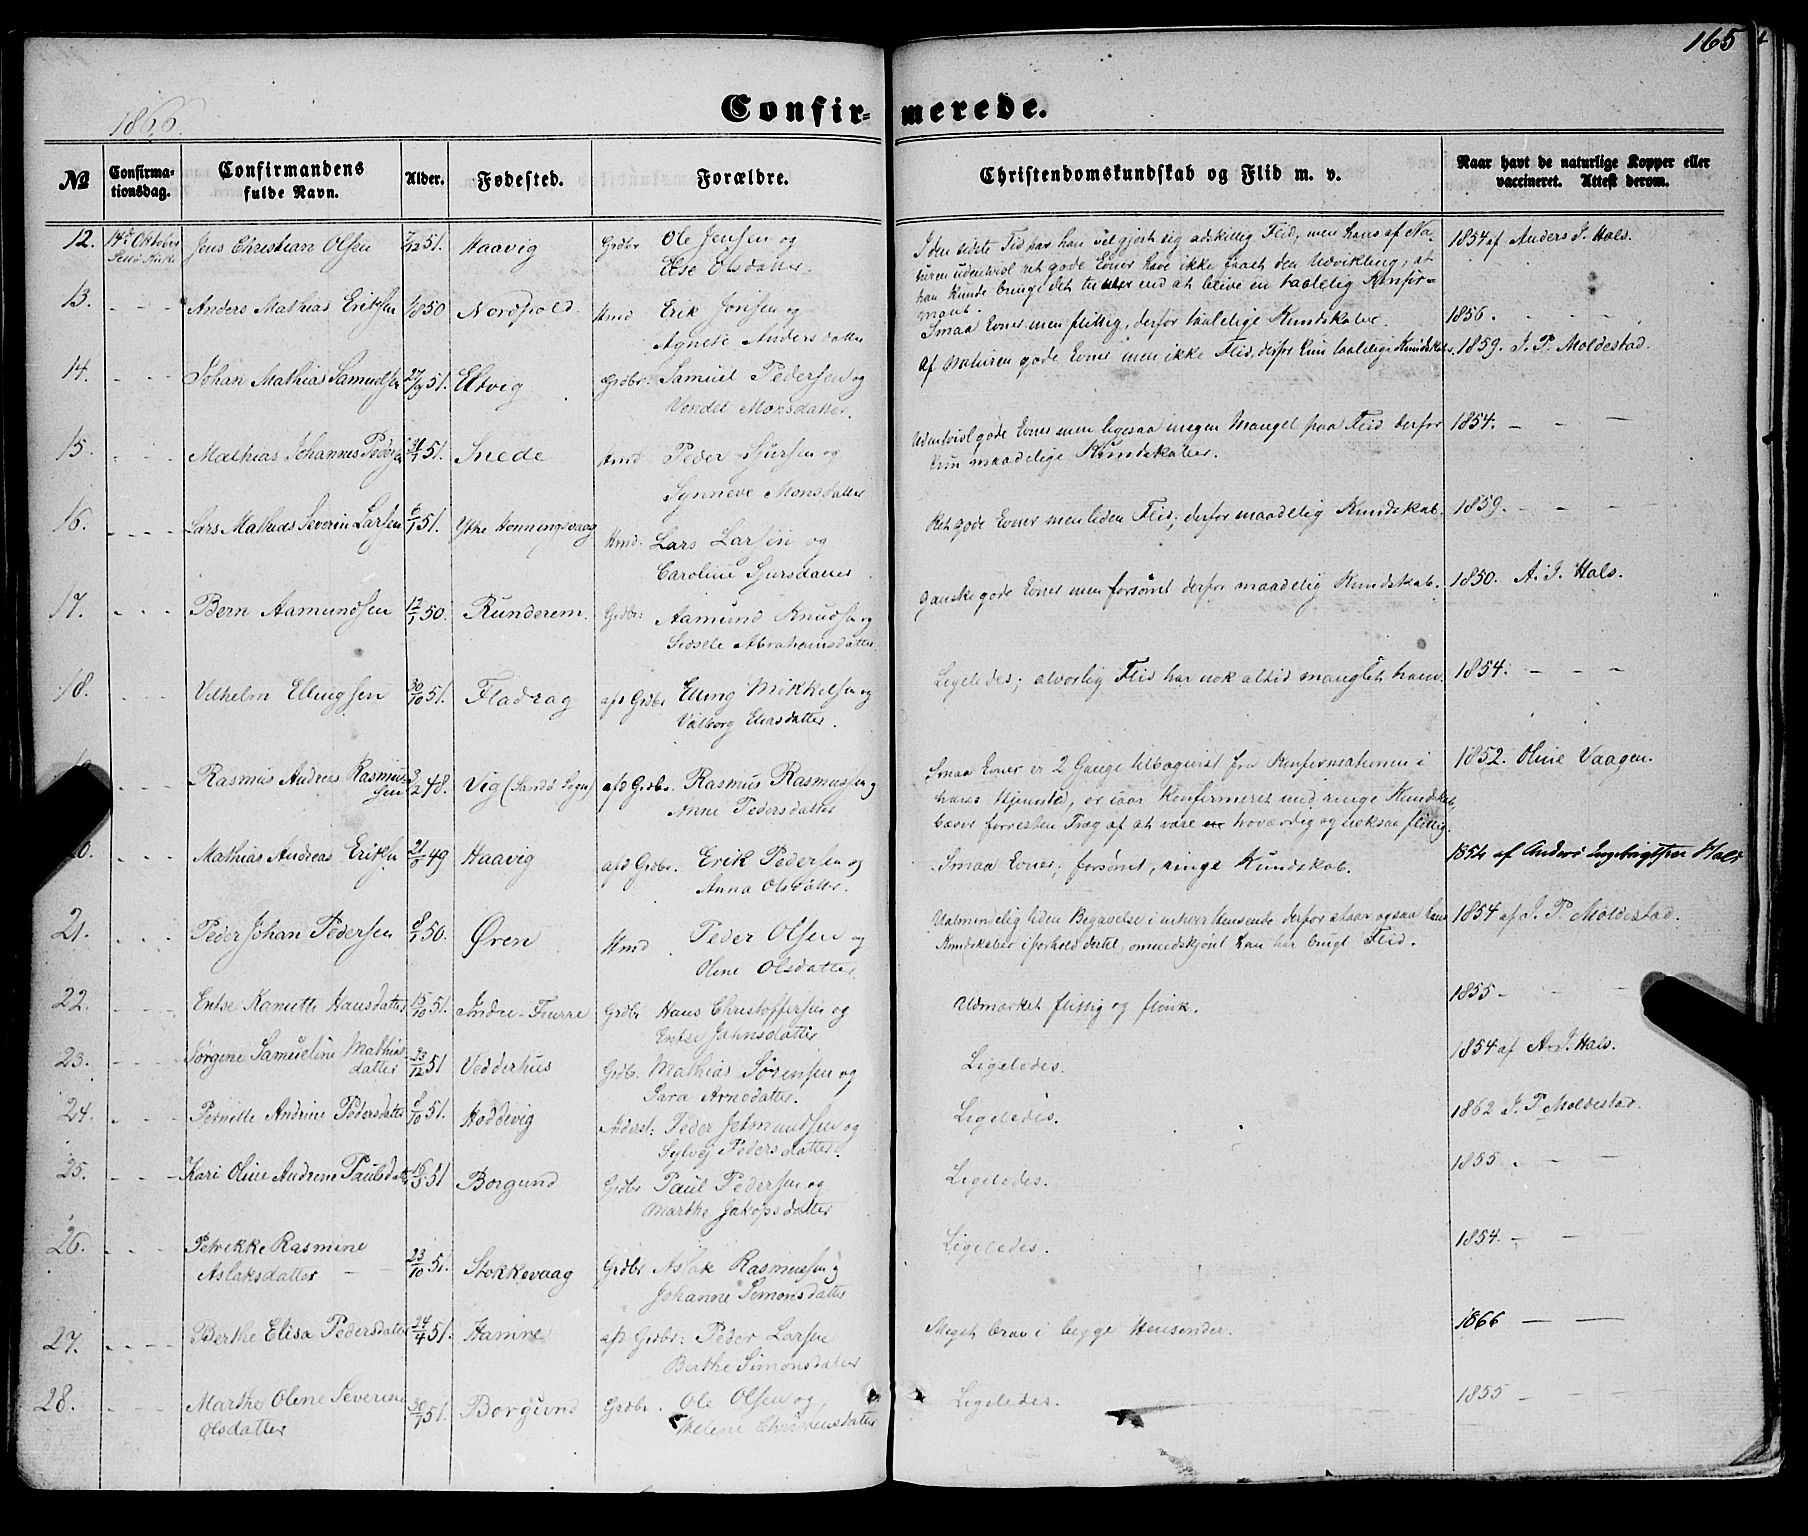 165
1866.
Confirmerede.
№
Confirmationsdag.
Confirmandens fulde Navn.
Alder.
Fødested.
Forældre.
Christendomskundskab og Flid m. v.
Naar havt de naturlige Kopper eller vaccineret. Attest derom.
12. 14de Oktober Jens Christian Olsen 7/12 51. Haavig Grdbr Ole Jensen og
Else Olsdatter.
I den sidste Tid har han vel gjort sig adskillig Flid, men hans af Na-
turen udentvivl ret gode Evner have ikke faaet den Udvikling, at
han kunde bringe det til end at blive en taalelig Konfir-
mant.
1854 af Anders I. Hals.
13. - - - Anders Mathias Eriksen 1/8 50 Nordpold. Hmd Erik Jonsen og
Agnete Andersdatter
Smaa Evner men flittig, derfor taalelige Kundskaber.
1856. - - -
14. - - - Johan Mathias Samuelsen 27/9 51. Eltvig Grdbr. Samuel Pedersen og
Vendel Monsdatter.
Af Naturen gode Evner men ikke Flid, derfor kun taalelige Kundskaber.
1859. I. P. Moldestad.
15. - - - Mathias Johannes Pedersen 51. Inede Hmd Peder Sjursen og
Synneve Monsdatter
Udentvivl gode Evner men ligesaa megen Mangel paa Flid derfor
kun maadelige Kundskaber.
1854. - - -
16. - - - Lars Mathias Severin Larsen 6/1 51. Ytre Honningsvaag Hmd. Lars Larsen og
Caroline Sjursdatter
Ret gode Evner men liden Flid; derfor maadelig Kundskab.
1859. - - -
17. - - - Bern Aamundsen 12/1 50. Runderem. Grdbr: Aamund Knudsen og
Sidsele Abrahamsdatter.
Ganske gode Evner men forsømt derfor maadelig Kundskab.
1850. A. I. Hals.
18. - - - Vilhelm Ellingsen 30/10 51. Fladrag afd Grdbr Elling Mikkelsen og
Valborg Eliasdatter.
Ligeledes; alvorlig Flid har nok altid manglet ham.
1854. - - -
- - - Rasmus Andreas Rasmus-
sen
48. Vig (Sandø Sogn) afd Grdbr. Rasmus Rasmussen og
Anne Pedersdatter
Smaa Evner er 2 Gange tilbagevist fra Konfirmationen i
hans Hjemsted, er iaar konfirmeret med ringe Kundskab,
bærer forresten Præg af at være troværdig og nøksaa flittig.
1852. Oline Vaagen.
20. - - - Mathias Andreas Eriksen 49 Haavig afd Grdbr. Erik Pedersen og
Anna Olsdatter.
Smaa Evner; forsømt, ringe Kundskab.
1854 af Anders Ingebrigtsen Hals
21. - - - Peder Johan Pedersen 8/1 50. Øren Hmd Peder Olsen og
Oline Olsdatter.
Ualmindelig liden Begavelse i enhver Henseende derfor staar ogsaa hans
Kundskaber i forhold dertil, omendskjønt han har brugt Flid.
1854 af I. P. Moldestad.
22. - - - Entse Kanutte Hansdatter 15/10 51. Indre-Furre Grdbr Hans Christophersen og
Entse Jahnsdatter
Udmærket flittig og flink.
1855 - - -
23. - - - Jørgine Samueline Mathias-
datter
23/12 51 Vedderhus Grdb. Mathias Sørensen og
Sara Arnedatter.
Ligeledes.
1854 af A. I. Hals.
24. - - - Pernille Andrine Pedersdatter 8/10 51. Hoddevig Aderst: Peder Jetmundsen og
Sylvej Pedersdatter
Ligeledes.
1862 I. P. Moldestad.
25. - - - Kari Oline Andrine Paulsdatter 16/5 51 Borgund Grdbr Paul Pedersen og
Marthe Jakopsdatter
Ligeledes.
1855. - - -
26. - - - Petrikke Rasmine
Aslaksdatter
23/10 51 Stokkevaag Grdbr Aslak Rasmussen og
Johanne Simonsdatter
Ligeledes.
1854. - - -
27. - - - Berthe Elisa Pedersdatter 24/4 51. Hamne afd Grdbr: Peder Larsen
Berthe Simonsdatter
Meget brav i begge Henseender.
1866 - -
28. - - - Marthe Oline Severine
Olsdatter
30/7 51. Borgund Grdbr. Ole Olsen og
Helene Christensdatter
Ligeledes.
1855 - -